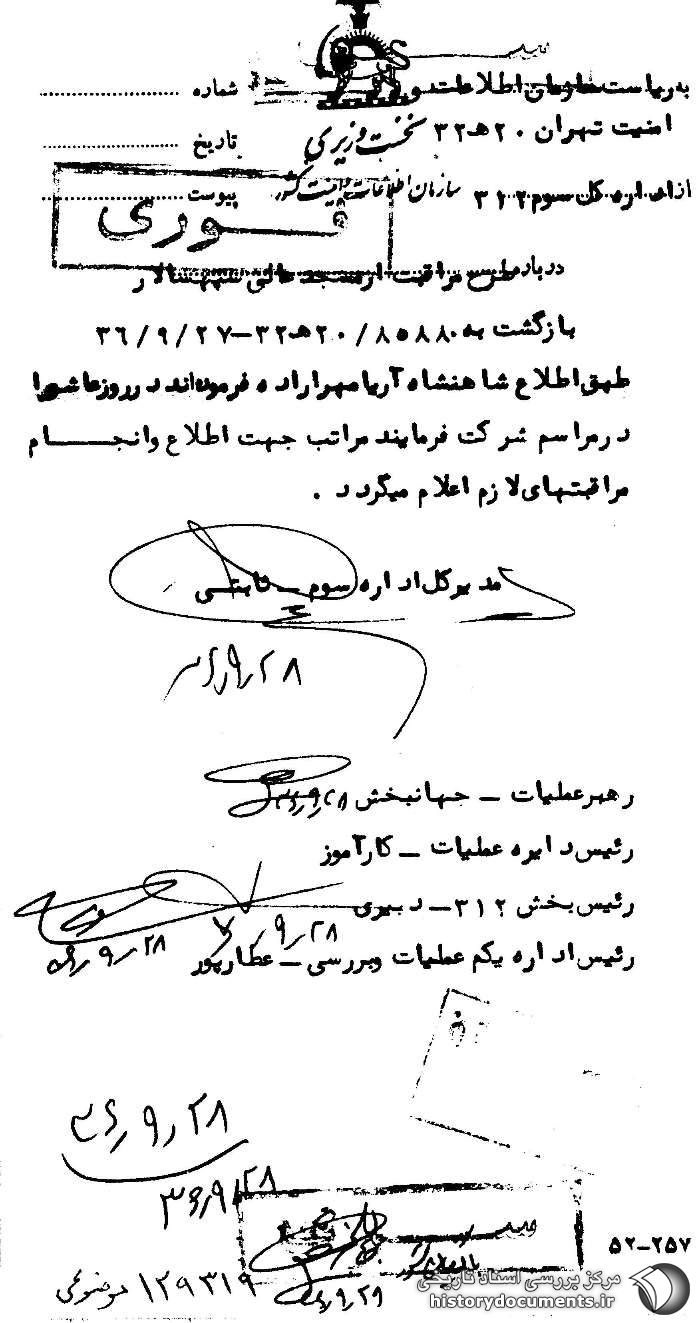 به ریاست سازمان اطلاعات و
شماره
امنیت تهران ۲۰هـ۳۲
نخست وزیری
تاریخ
از اداره کل سوم ۳۱۲
سازمان اطلاعات و امنیت کشور
پیوست
فوری
درباره طرح مراقبت از مسجد عالی سپهسالار
بازگشت به ۸۵۸۸/۲۰هـ۳۲-۳۶/۹/۲۷
طبق اطلاع شاهنشاه آریامهر اراده فرموده‌اند در روز عاشورا
در مراسم شرکت فرمایند مراتب جهت اطلاع وانجام
مراقبتهای لازم اعلام میگردد .
مدیرکل اداره سوم ـ ثابتی
۳۶/۹/۲۸
رهبرعملیات ـ جهانبخش ۳۶/۹/۲۸
رئیس دایره عملیات ـ کارآموز
رئیس بخش ۳۱۲ـ دبیری
۹/۲۸
۳۶/۹/۲۸
رئیس اداره یکم عملیات وبررسی ـ عطارپور
۳۶/۹/۲۸
۳۶/۹/۲۸
۵۲-۲۵۷
۱۲۹۳۱۹ موضوعی
۹/۲۹
مرکز بررسی اسناد تاریخی
historydocuments.ir